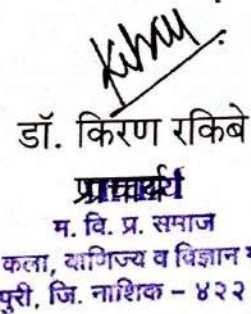 डॉ. किरण रकिबे
प्राचार्य
म. वि. प्र. समाज
कला, वाणिज्य व विज्ञान
पुरी, जि. नाशिक – ४२२